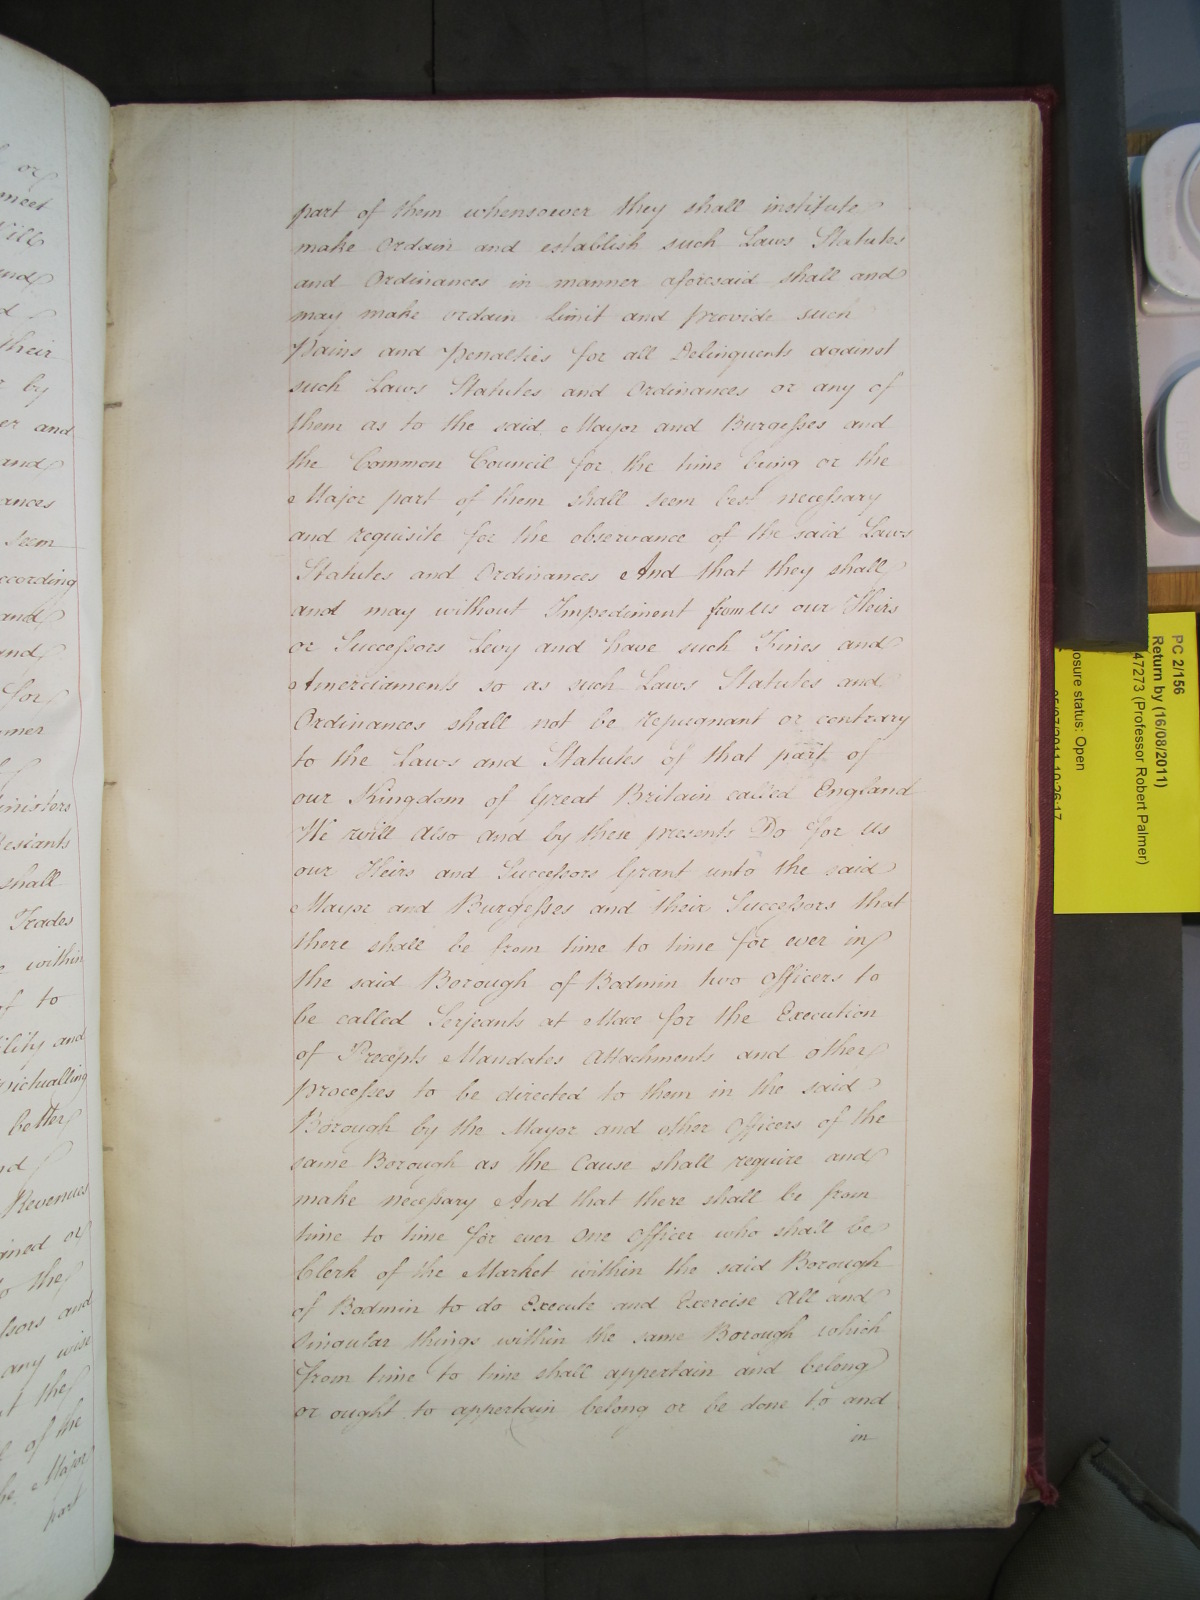 part of them whensoever they shall institute
make Ordain and establish such Laws Statutes
and Ordinances in manner aforesaid shall and
may make ordain limit and provide such
Pains and Penalties for all Delinquents against
such Laws Statutes and Ordinances or any of
them as to the said Mayor and Burgesses and
the Common Council for the time being or the
Major part of them shall seem best necessary
and requisite for the observance of the said Laws
Statutes and Ordinances And that they shall
and may without Impediment from us our Heirs
or Successors Levy and have such Fines and
Amerciaments so as such Laws Statutes and
Ordinances shall not be repugnant or contrary
to the Laws and Statutes of that part of
our Kingdom of Great Britain called England
We will also and by these presents Do for us
our Heirs and Successors Grant unto the said
Mayor and Burgesses and their Successors that
there shall be from time to time for ever in
the said Borough of Bodmin two Officers to
be called Serjeants at Mace for the Execution
of Precepts Mandates Attachments and other
processes to be directed to them in the said
Borough by the Mayor and other Officers of the
same Borough as the Cause shall require and
make necessary And that there shall be from
time to time for ever One Officer who shall be
Clerk of the Market within the said Borough
of Bodmin to do Execute and Exercise All and
Singular things within the same Borough which
from time to time shall appertain and belong
or ought to appertain belong or be done to and
in
or
meet
and
their
by
and
and
ances
seem
ccording
and
and
for
mer
inisters
shall
Trades
within
of to
ility and
ictualling
better
Revenues
ined or
to the
ssors and
any wise
the
of the
Major
part
PC 2/156
Return by (16/08/2011)
47273 (Professor Robert Palmer)
osure status: Open